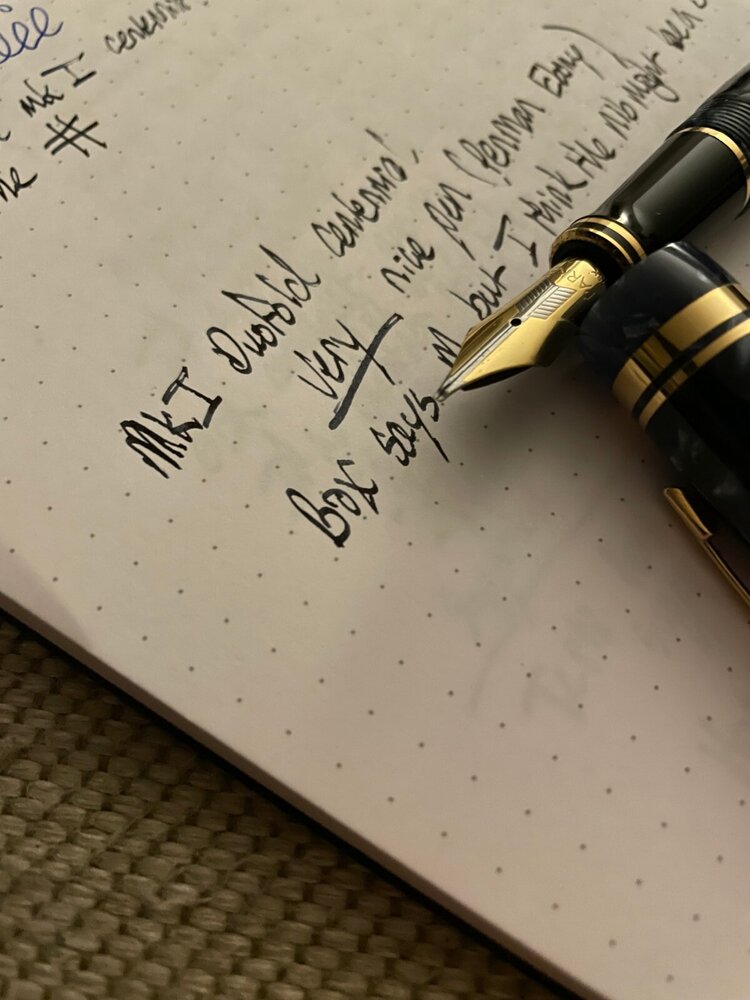 Mk I centennial
#
MkI Duofold centennial!
Very nice pen (Permian Ebony)
Box says M but I think the nib might